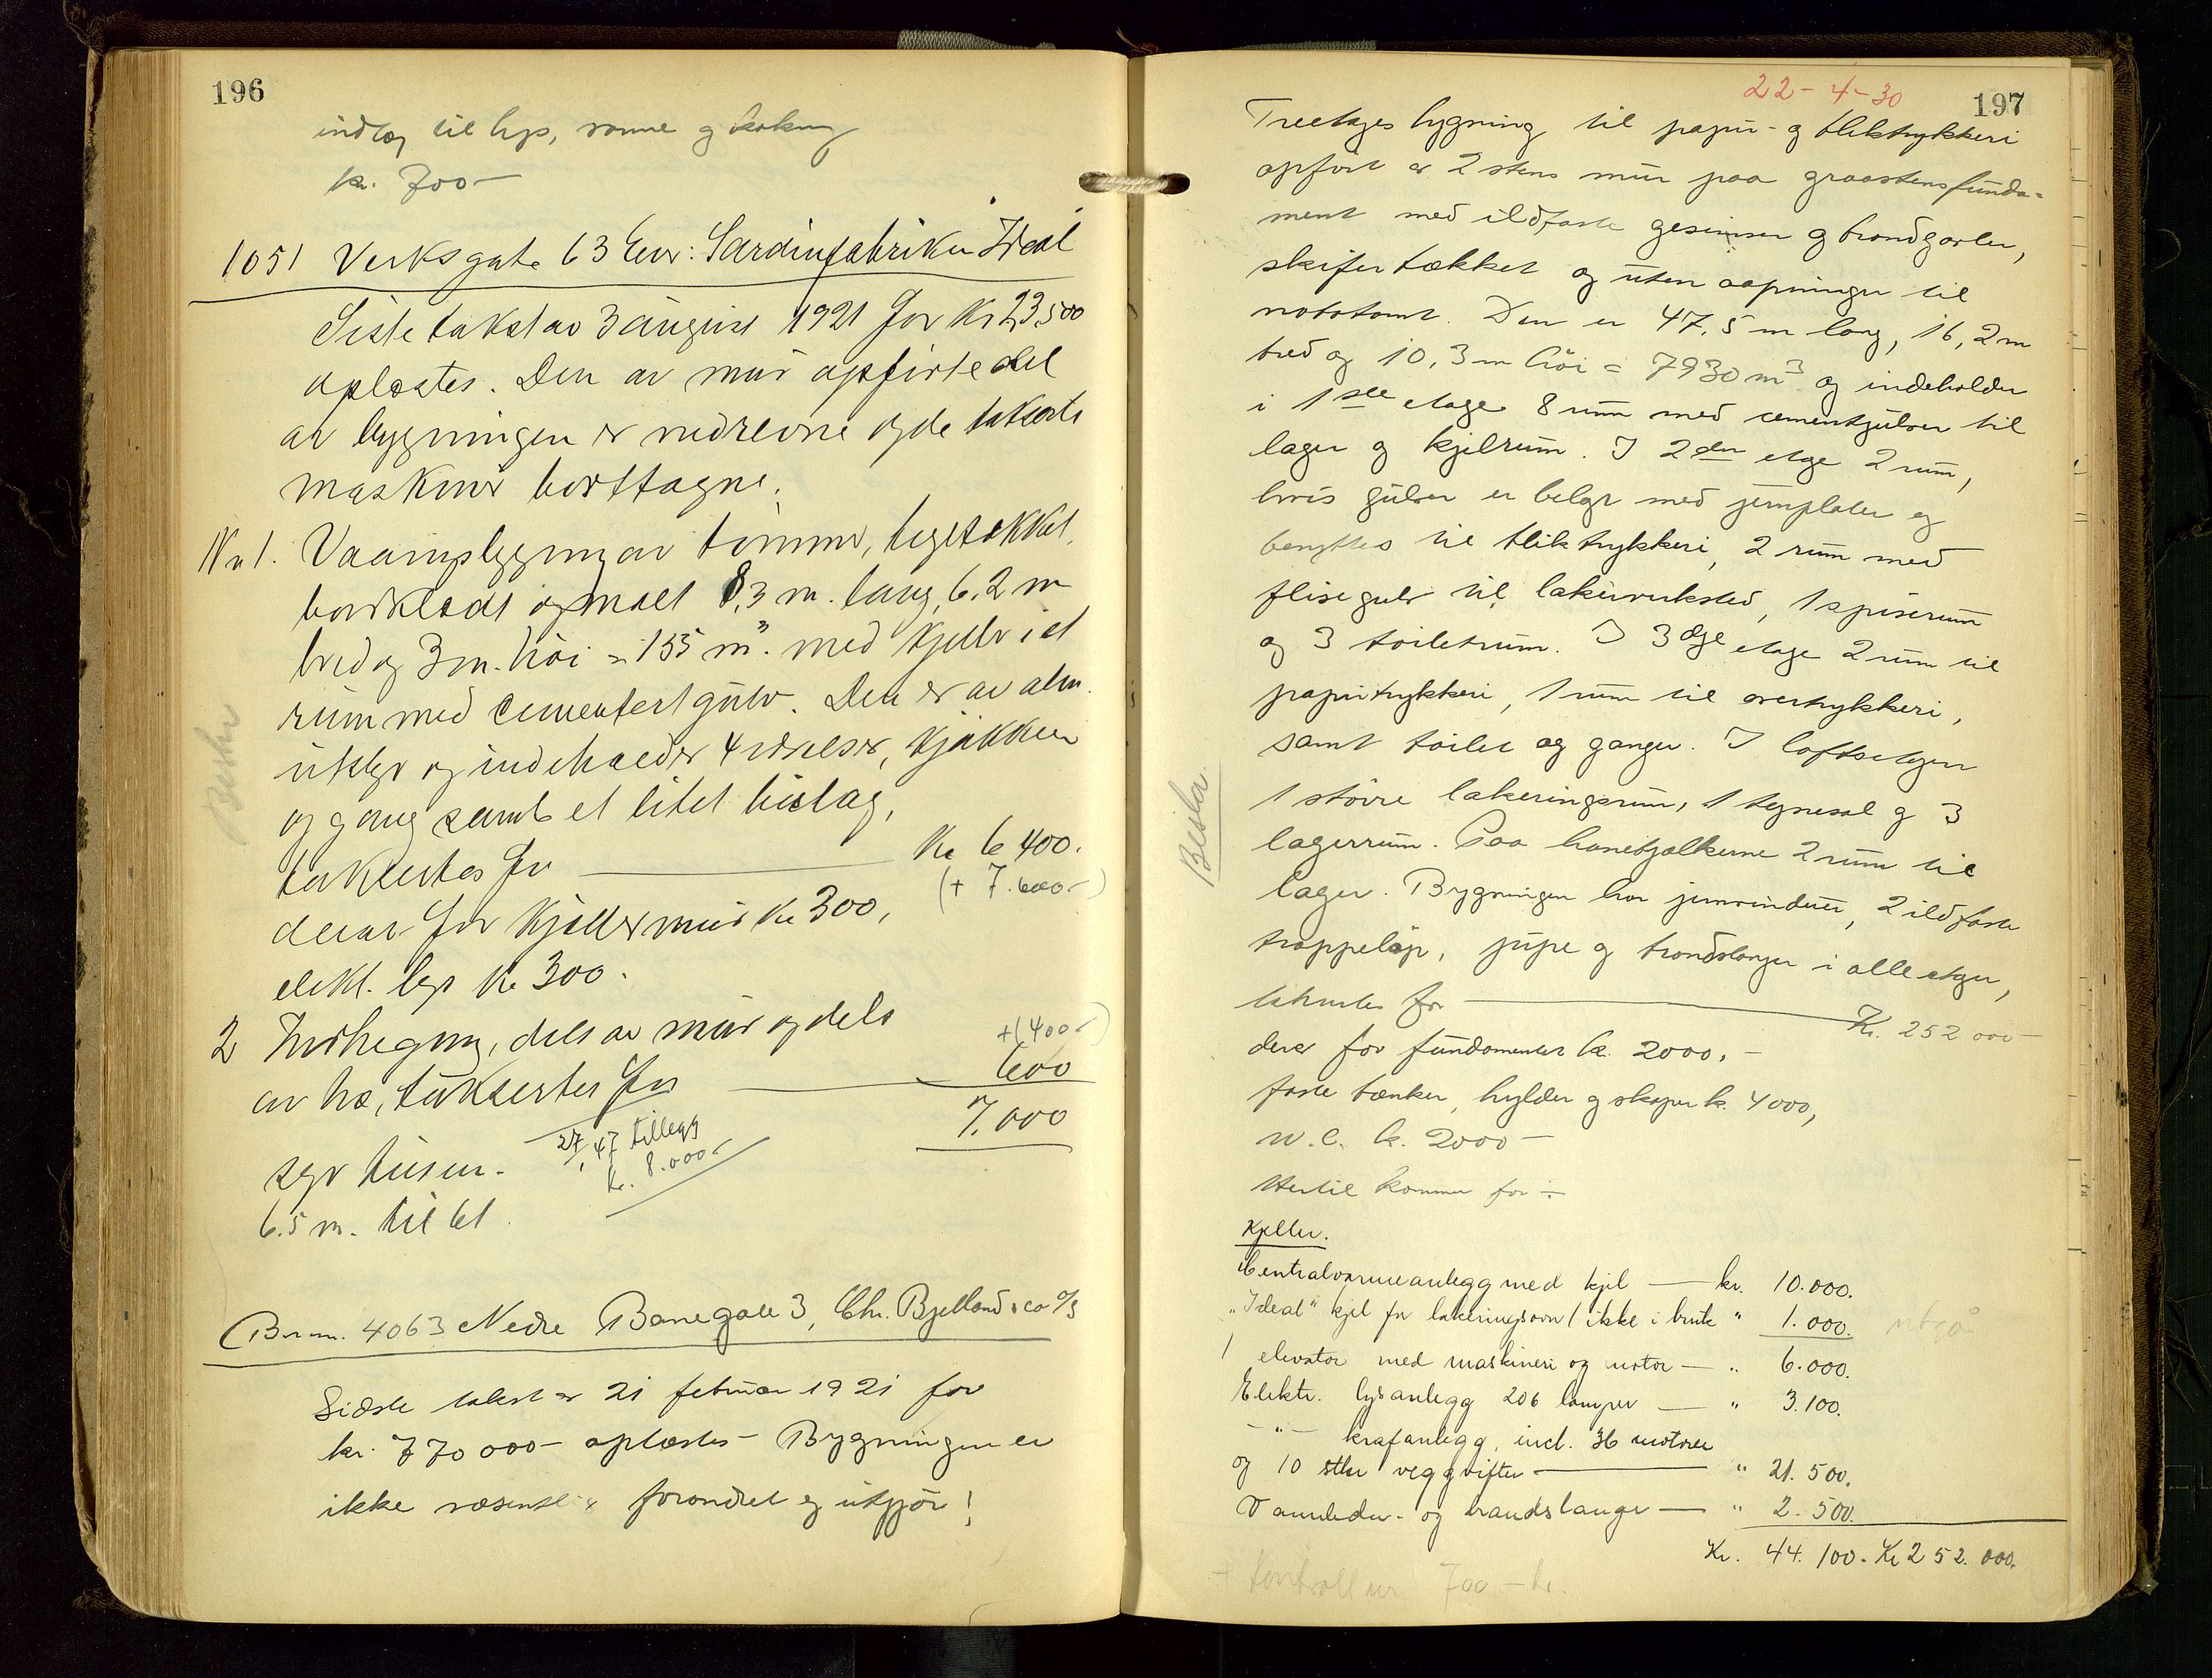 196
indlæg til lys, varme og kokning
kr. 700 -
1051 Verksgate 63 Eier: Sardinfabriken Ideal
Siste takst av 3 august 1921 for Kr 23,500
oplæstes. Den av mur opførte del
av bygningen er nedrevne og de takserte
maskiner borttagne.
Nr 1. Vaaningsbygning av tømmer, teglstækket,
bordklædt og malt 8,3 m. lang, 6,2 m
bred og 3 m. høi = 155 m³. med kjeller i et
rum med cementert gulv. Den er av alm.
utstyr og indeholder 4 værelser, kjøkken
og gang samt et litet bislag,
takseres for — Kr 6 400.
(+ 7.600 -)
derav for kjeller mur Kr 300,
elekt. lys Kr 300.
2 Indhegning, dels av mur og dels
+(400 -)
av træ, takseres for — 600
7.000
27/1 47 tillegg
kr. 8.000 -
syv husen.
6.5 m. til 61.
Br.nr. 4063 Nedre Banegate 3, Chr. Bjelland & Co A/S
Sidste takst av 21 februar 1921 for
kr. 770 000 - oplæstes - Bygningen er
ikke væsentlig forandret og utgjør!
22 - 4 - 30
197
Treetages bygning til papir- og bliktrykkeri
opført av 2 stens mur paa graastensfunda-
ment med ildfaste gesimser og brandgavler,
skifertækket og uten aapninger til
nabotomt. Den er 47,5 m lang, 16,2 m
bred og 10,3 m høi = 7930 m³ og indeholder
i 1ste etage 8 rum med cementgulver til
lager og kjelrum. I 2den etage 2 rum,
hvis gulver er belagt med jernplater og
benyttes til bliktrykkeri, 2 rum med
flisegulv til lakerverksted, 1 spiserum
og 3 toiletrum. I 3dje etage 2 rum til
papirtrykkeri, 1 rum til overtrykkeri,
samt toilet og ganger. I loftsetagen
1 større lakeringsrum, 1 tegnesal og 3
lagerrum. Paa hanebjælkerne 2 rum til
lager. Bygningen har jernvinduer, 2 ildfaste
trappeløp, pipe og brandslanger i alle etager,
takseres for — Kr. 252 000 -
derav for fundamenter kr. 2000. -
faste bænker, hylder og skaper kr. 4000,
W.C. kr. 2000 -
Hertil kommer for :-
Kjeller.
Centralvarmeanlegg med kjel — kr. 10.000.
"Ideal" kjel for lakeringsovn (ikke i bruk " 1.000. utgå
1 elevator med maskineri og motor — " 6.000.
Elektr. lysanlegg 206 lamper — " 3.100.
- " - krafanlegg, incl. 36 motorer
og 10 stkr veggvifter — " 21.500.
Vannledn.- og brandslange — " 2.500.
Kr. 44.100. Kr 252.000.
+ kontroll ur 700 - kr.